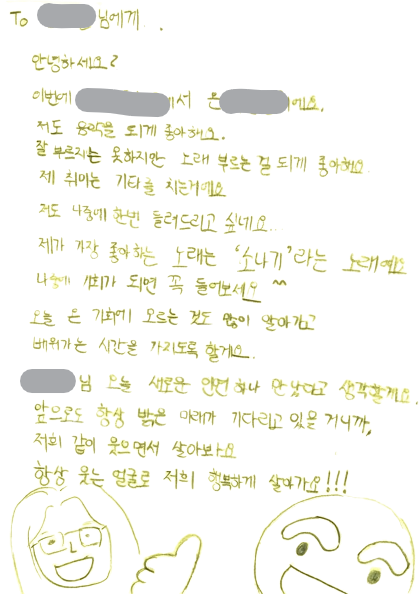 To 님에게 . .
안녕하세요?
이번에 에서 온 에요.
저도 음악을 되게 좋아해요.
잘 부르지는 못하지만 노래 부르는 걸 되게 좋아해요.
제 취미는 기타를 치는거예요
저도 나중에 한번 들려드리고 싶네요..
제가 가장 좋아하는 노래는 '소나기'라는 노래예요
나중에 기회가 되면 꼭 들어보세요 ^^
오늘 온 기회에 모르는 것도 많이 알아가고
배워가는 시간을 가지도록 할게요.
님 오늘 새로운 인연 하나 만났다고 생각할게요.
앞으로도 항상 밝은 미래가 기다리고 있을 거니까,
저희 같이 웃으면서 살아봐요
항상 웃는 얼굴로 저희 행복하게 살아가요!!!